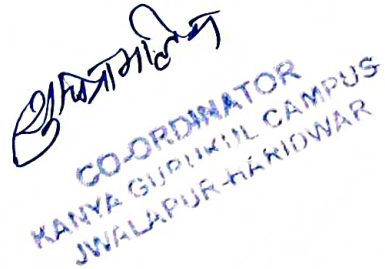 CO-ORDINATOR
KANYA GURUKUL CAMPUS
JWALAPUR-HARIDWAR